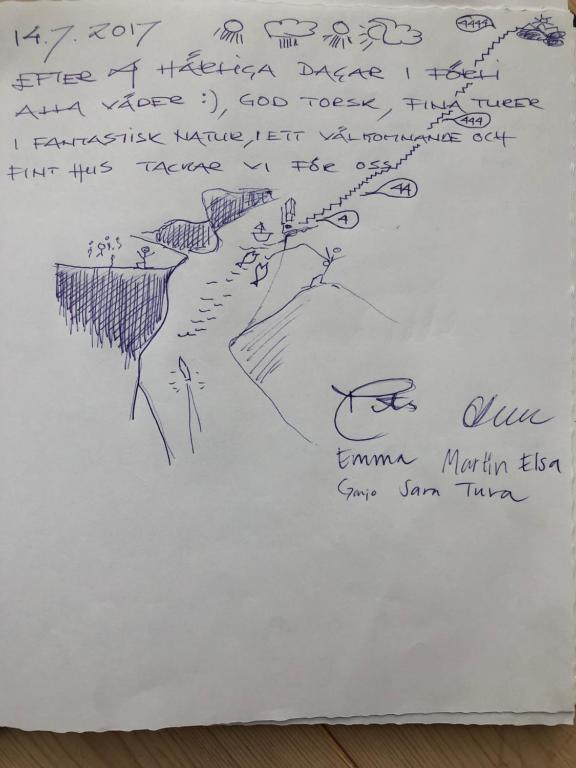 14.7.2017
EFTER 4 HÄRLIGA DAGAR I
ALLA VÄDER :), GOD TORSK, FINA TURER
I FANTASTISK NATUR, I ETT VÄLKOMNANDE OCH
FINT HUS TACKAR VI FÖR OSS
4444
444
44
4
Emma Martin Elsa
Sara Tuva